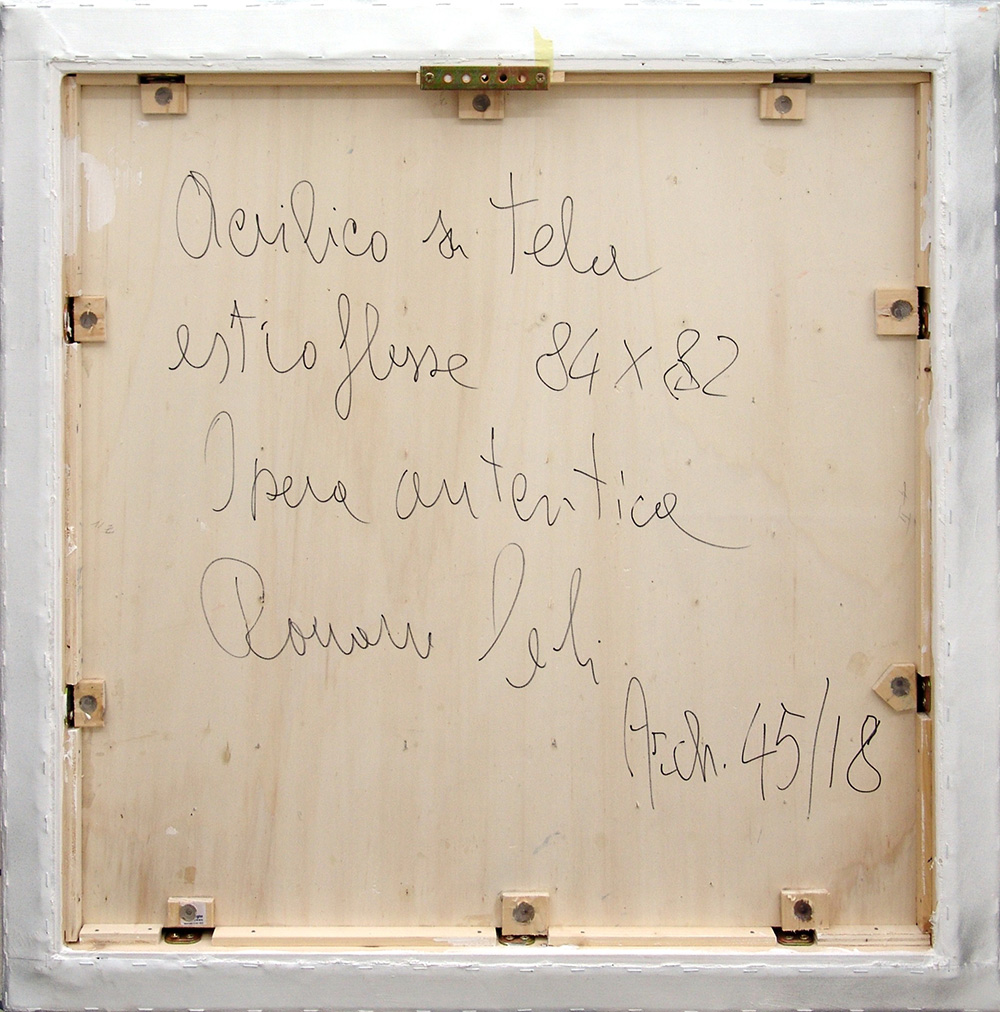 Acrilico su tela
estroflessa 84 x 82
Opera autentica
Arch. 45/18